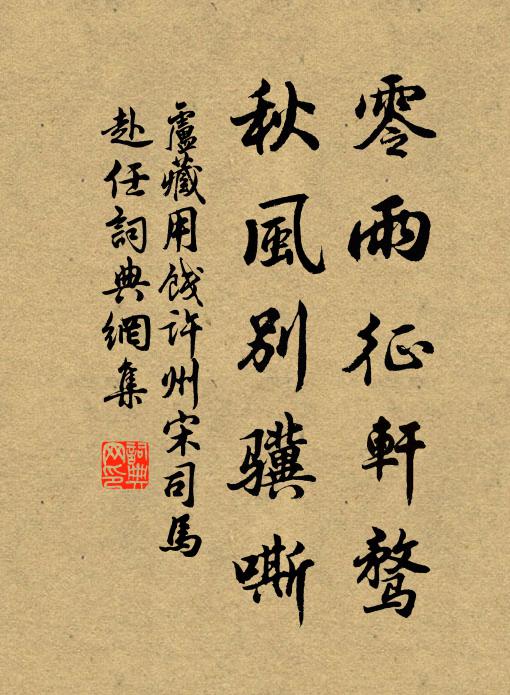 零雨征軒鶩
秋風別驥嘶
盧藏用餞許州宋司馬
赴任詞典網集
詞典
网印